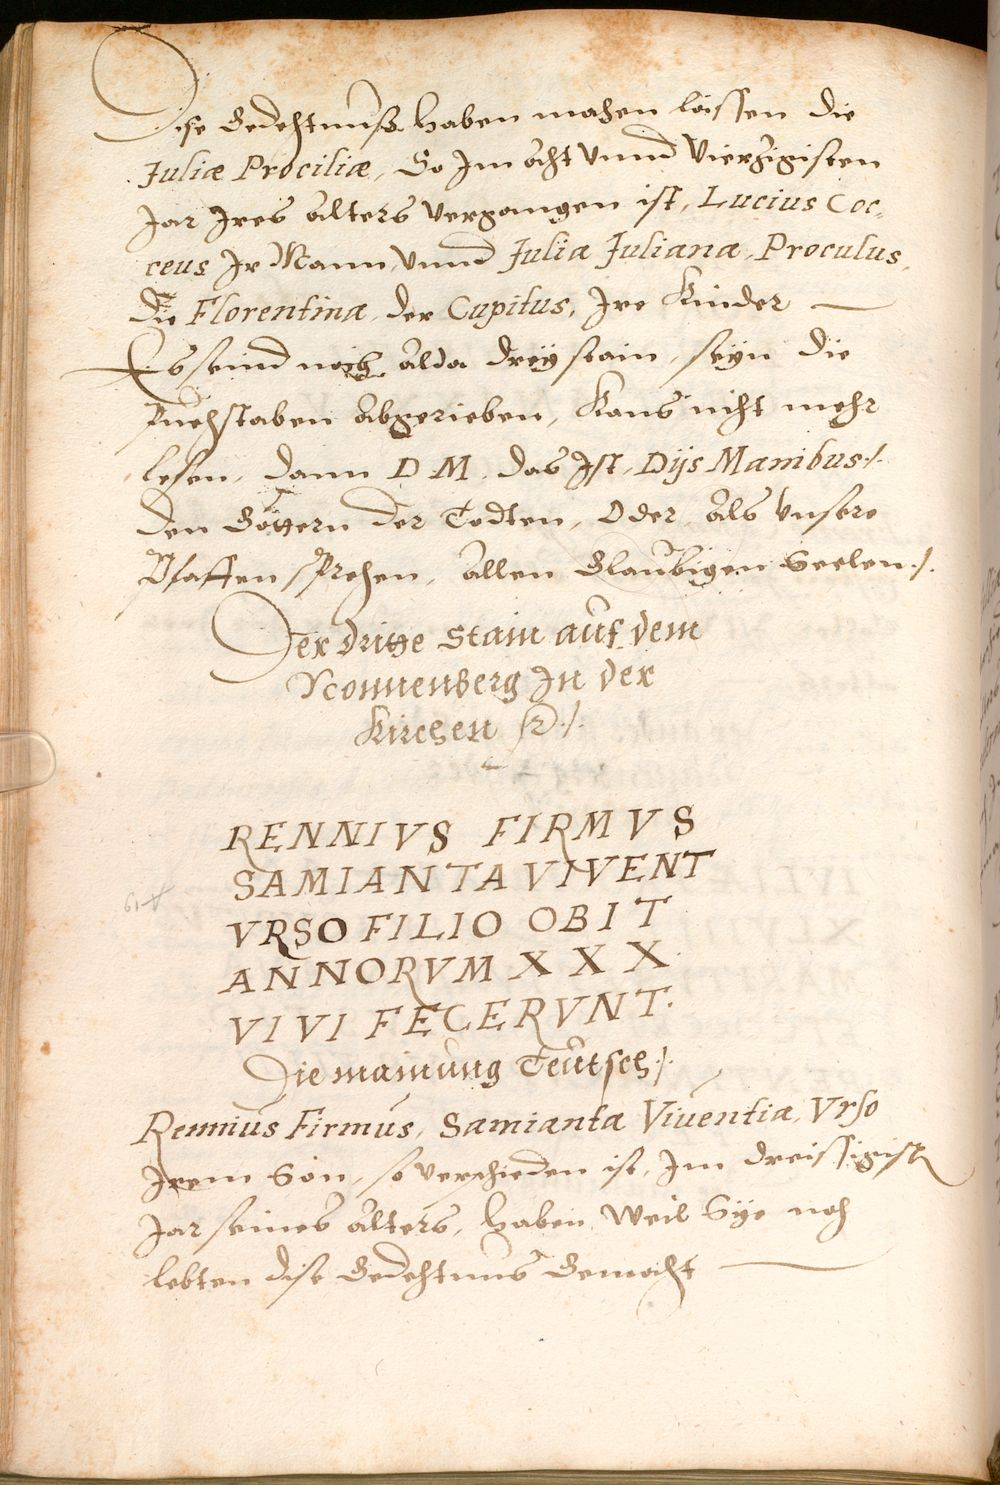 Dise Gedechtnuß haben machen lassen die
Juliæ Prociliæ, So Im acht vnnd Vierzigisten
Jar Ires alters vergangen ist, Lucius Coc-
ceus Ir Mann, vnnd Julia Juliana, Proculus,
die Florentina, der Cupitus, Ire Kinder
Es seind noch alda drey stain, seyn die
Puechstaben abgerieben, Kans nicht mehr
lesen, dann D M, das Ist, Dijs Manibus./.
den Göttern der Todten, Oder als vnsere
Pfaffen sprechen, allen Glaubigen Seelen./.
Der dritte Stain auf dem
Nonnenberg In der
Kirchen ./.
RENNIVS FIRMVS
SAMIANTA VIVENT
VRSO FILIO OBIT
ANNORVM XXX
VIVI FECERVNT.
Die mainung Teutsch./.
Rennius Firmus, Samianta Viuentia, Vrso
Irem Son, so verschieden ist, Im dreissigist
Jar seines alters, haben Weil Sÿe noch
lebten dise Gedechtnus Gemacht